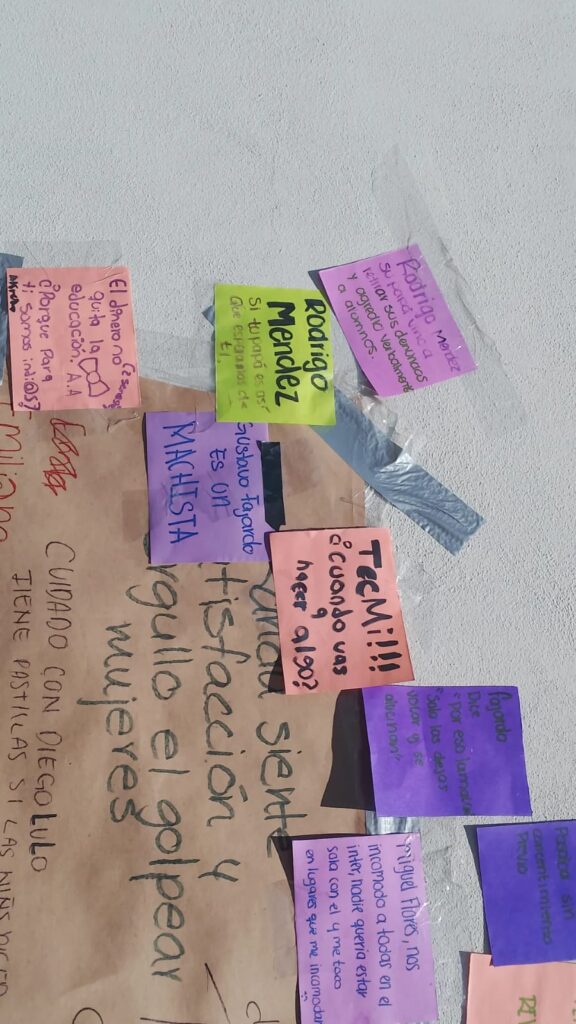 Rodrigo Mendez
su papá vino a
retirar sus denuncias
y agredio verbalmente
a alumnos.
Rodrigo
Mendez
Si tu papá es así
Que esperamos de
ti.
El dinero no
quita la
educación, A.A
¿Porque para
ti somos indi@s?
Gustavo Fajardo
Es un
MACHISTA
TecMi!!!
¿cuando vas
a
hacer algo?
Fajardo
Dice
"Por eso
"Solo las dejas
y se
Miguel Flores, nos
incomodo a todas en el
inter, nadie queria estar
sola con el y me toco
en lugares que me incomodan
sin
consentimiento
Previo
siente
satisfacción y
orgullo el golpear
mujeres
CUIDADO CON DIEGO LULO
TIENE PASTILLAS SI LAS